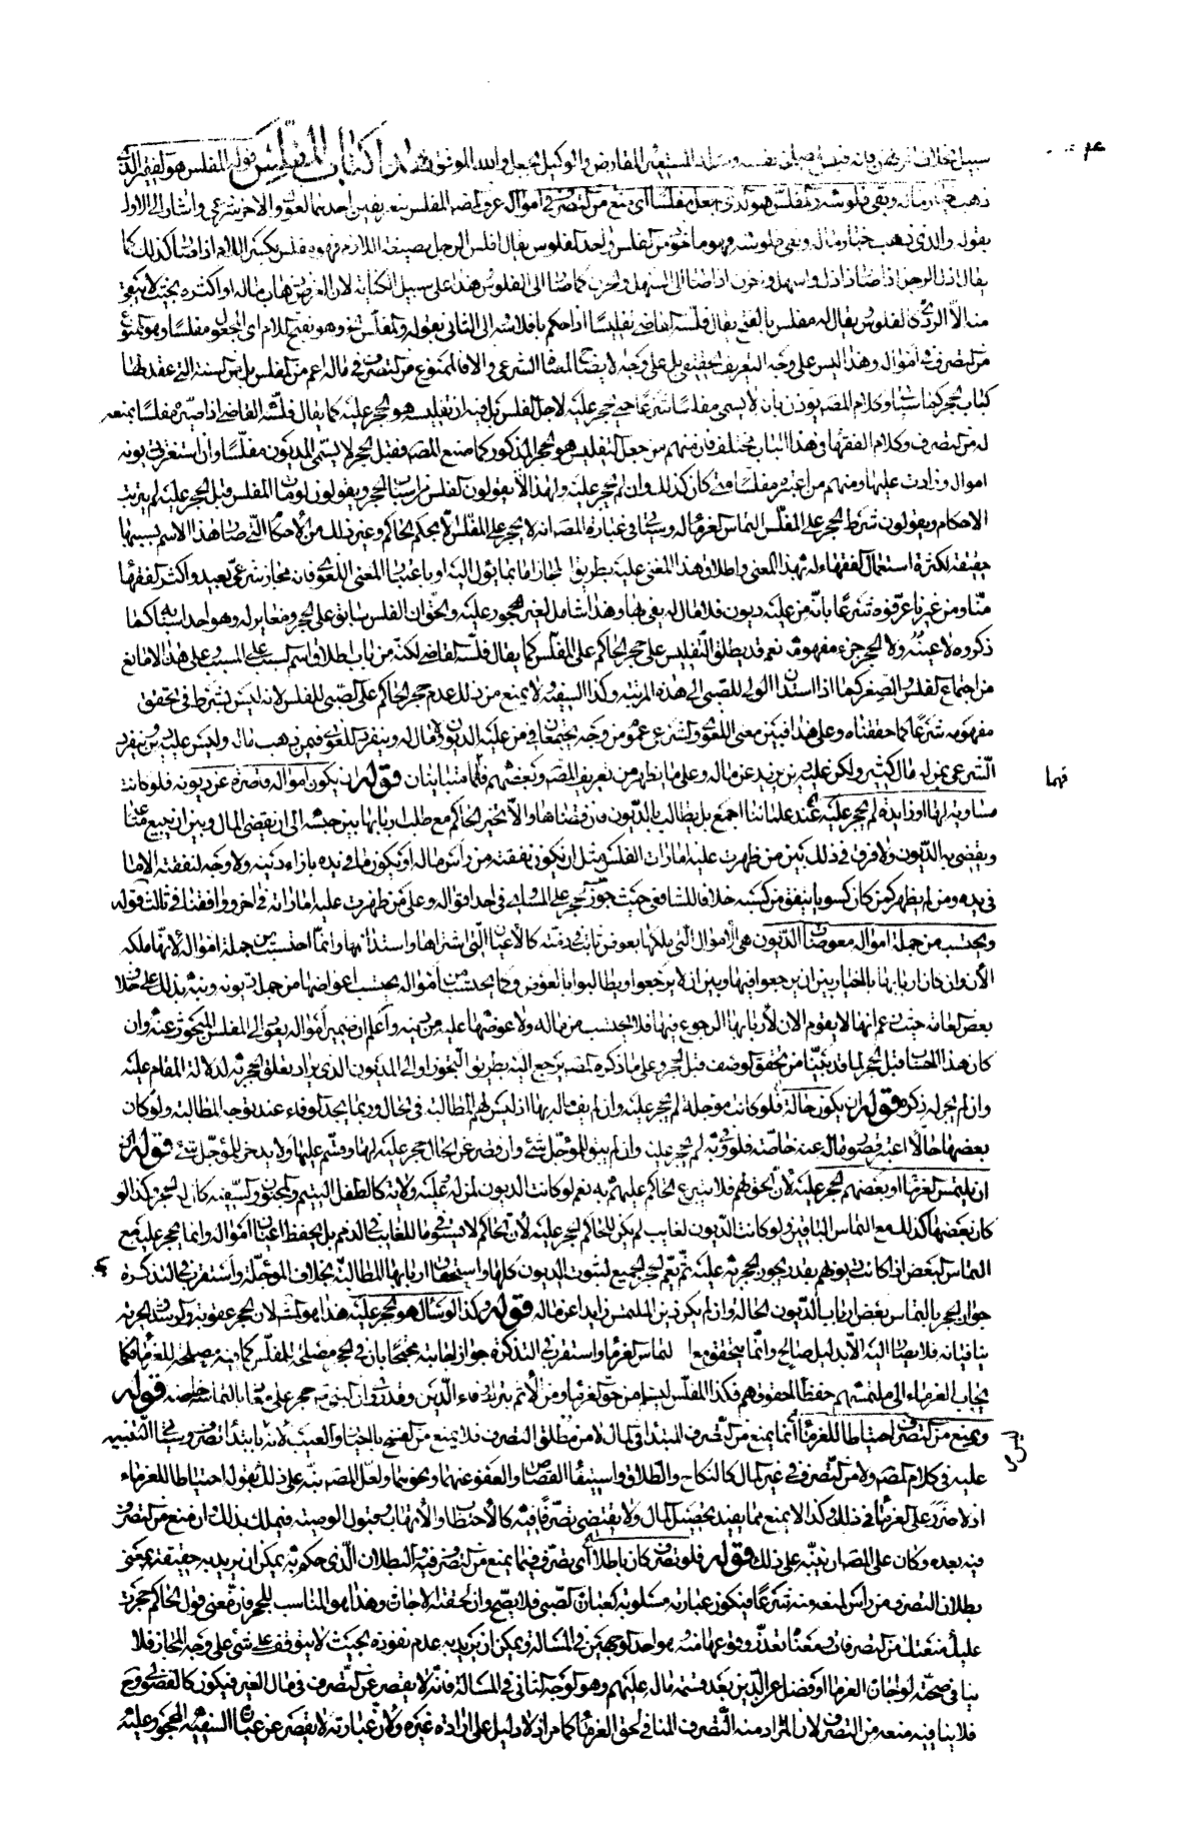 سبيل بخلاف المرتهن فانه قبضه لمصلحة نفسه المستعير المقارض والوكيل بجعل والله الموفق كتاب المفلس قوله المفلس هو الفقير الذى
ذهب خيار ماله وبقى فلوسه والمفلس هو الذى جعل مفلسا اى منع من التصرف فى امواله عرف المصـ المفلس بتعريفين احدهما لغوى والاخر شرعى واشار الى الاول
بقوله والذى ذهب خيار ماله وبقى فلوسه وهو ماخوذ من الفلس واحد الفلوس يقال افلس الرجل بصيغة اللازم فهو مفلس بكسر اللام اذا صار كذلك كما
يقال اذل الرجل اذا صار ذا ذل واسهل واحزن اذا صار الى السهل والحزن كما صار الى الفلوس هذا على سبيل الكناية لان الغرض ذهاب ماله او اكثره بحيث لا يبقى
منه الا الردى كالفلوس يقال له مفلس بالفتح يقال فلسه القاضى تفليسا اذا حكم بافلاسه الى الثانى بقوله والمفلس وهو بفتح اللام اى المجعول مفلسا وهو الممنوع
من التصرف فى امواله وهذا ليس على وجه التعريف الحقيقى بل على وجه لايضاح المعنى الشرعى والا فالممنوع من التصرف فى ماله اعم من المفلس بل من الستة التى عقد لها
كتاب الحجر كما سياتى وكلام المصـ يوذن بان لا يسمى مفلسا شرعا حتى يحجر عليه لاجل الفلس بل فيه ان تفليسه هو الحجر عليه كما يقال فلسه القاضى اذا صيره مفلسا بمنعه
له من التصرف وكلام الفقهاء فى هذا الباب مختلف فان منهم من جعل التفليس هو الحجر المذكور كما صنع المصـ فقبل الحجر لا يسمى المديون مفلسا وان استغرقت ديونه
امواله وزادت عليها ومنهم من اعتبره مفلسا متى كان كذلك وان لم يحجر عليه ولهذا الا يقولون الفلس من اسباب الحجر ويقولون لو مات المفلس قبل الحجر عليه لم يترتب
الاحكام ويقولون شرط الحجر على المفلس التماس الغرماء له وسياتى فى عبارة المصـ انه لا يحجر على المفلس الا بحكم الحاكم وغير ذلك من الاحكام التى صار هذا الاسم بسببها
حقيقة لكثرة استعمال الفقهاء له بهذا المعنى واطلاق هذا المعنى عليه بطريق المجاز اما بما يؤل اليه او باعتبار المعنى اللغوى فانه مجاز شرعى بعيد واكثر الفقهاء
منا ومن غيرنا عرفوه شرعا بانه من عليه ديون فلا مال له يفى بها وهذا شامل لغير المحجور عليه والحق ان الفلس سابق على الحجر ومغاير له وهو احد اسبابه كما
ذكروه لا عينه ولا الحجر جزء مفهومه نعم قد يطلق التفليس على حجر الحاكم على المفلس كما يقال فلسه القاضى لكنه من باب اطلاق اسم السبب على المسبب وعلى هذا لا مانع
من اجتماع الفلس والصغر كما اذا استدان الولى للصبى الى هذه المرتبة وكذا السفيه ولا يمنع من ذلك عدم حجر الحاكم على الصبى للفلس لانه ليس شرطا فى تحقق
مفهومه شرعا كما حققناه وعلى هذا فبين معنى اللغوى والشرعى عموم من وجه يجتمعان فى من عليه الديون ولا مال له وينفرد اللغوى فيمن ذهب ماله وليس عليه دين وينفرد
الشرعى بمن له مال كثير ولكن عليه دين يزيد عن ماله وعلى ما يظهر من تعريف المصـ وبعضهم فهما متباينان قوله ان يكون امواله قاصرة عن ديونه فلو كانت
فهما
مساوية لها او زايدة لم يحجر عليه عند علمائنا اجمع بل يطالب بالديون فان قضاها والا تخير الحاكم مع طلب اربابها بين حبسه الى ان يقضى المال وبين ان يبيع متاعه
ويقضى به الديون ولا فرق فى ذلك بين من ظهرت عليه امارات الفلس مثل ان يكون نفقته من راس ماله او يكون ما فى يده بازاء دينه ولا وجه لنفقته الا ما
فى يده ومن لم يظهر كمن كان كسوبا ينفق من كسبه خلافا للشافعى حيث جوز الحجر على المساوى فى احد اقواله وعلى من ظهرت عليه اماراته فى اخر ووافقنا فى ثالث قوله
ويحتسب من جملة امواله معوضات الديون هى الاموال التى يملكها بعوض ثابت فى ذمته كالاعيان التى اشتراها واستدانها وانما احتسبت من جملة امواله لانها ملكه
الان وان كان اربابها بالخيار بين ان يرجعوا فيها وبين ان لا يرجعوا ويطالبوا بالعوض وكما يحتسب من امواله يحتسب اعواضها من جملة ديونه ونبه بذلك على خلاف
بعض العامة حيث زعم انها لا يقوم الان لاربابها الرجوع فيها فلا يحتسب من ماله ولا عوضها عليه من دينه واعلم ان ضمير امواله يعود الى المفلس المبحوث عنه وان
كان هذا الحساب قبل الحجر لما قد بينا من تحقق الوصف قبل الحجر وعلى ما ذكره المصـ يرجع اليه بطريق التجوز او الى المديون الذى يراد تعلق الحجر به لدلالة المقام عليه
وان لم يجر له ذكر قوله ان يكون حالة فلو كانت مؤجلة لم يحجر عليه وان لم يف ماله بها اذ ليس لهم المطالبة فى الحال وربما يجد الوفاء عند توجه المطالبة ولو كان
بعضها حالا اعتبر قصور ماله عنه خاصة فلو وفى به لم يحجر عليه وان لم يبق للمؤجل شئ وان قصر عن الحال حجر عليه لها وقسم عليها ولا يدخر للمؤجل شئ قوله
ان يلتمس الغرماء او بعضهم الحجر عليه لان الحق لهم فلا يتبرع الحاكم عليهم به نعم لو كانت الديون لمن له عليه ولاية كالطفل اليتيم والمجنون والسفيه كان له الحجر وكذا لو
كان بعضها كذلك مع التماس الباقين ولو كانت الديون لغايب لم يكن للحاكم الحجر عليه لان الحاكم لا يستوفى ما للغايب فى الذمم بل يحفظ اعيان امواله وانما يحجر عليه مع
التماس البعض اذا كانت ديونهم بقدر يجوز الحجر به عليه ثم يعم الحجر الجميع لثبوت الديون كلها واستحقاق اربابها المطالبة بخلاف المؤجلة واستقرب فى التذكرة
جواز الحجر بالتماس بعض ارباب الديون الحالة وان لم يكن دين الملتمس زايدا عن ماله قوله وكذا لو سال هو الحجر عليه هذا هو المشهور لان الحجر عقوبة والرشد والحرية
ينافيانه فلا يصار اليه الا بدليل صالح وانما يتحقق مع التماس الغرماء واستقرب فى التذكرة جواز اجابته محتجا بان فى الحجر مصلحة للمفلس كما فيه مصلحة للغرماء فكما
يجاب الغرماء الى ملتمسهم حفظا لحقوقهم فكذا المفلس ليسلم من حق الغرماء ومن الاثم بترك وفاء الدين وقد روى ان النبى صـ حجر على معاذ بالتماسه خاصة قوله
ويمنع من التصرف احتياطا للغرماء انما يمنع من التصرف المبتدا فى المال لا من مطلق التصرف فلا يمنع من الفسخ بالخيار والعيب لانه ليس بابتداء تصرف وسياتى التنبيه
عليه فى كلام المصـ ولا من التصرف فى غير المال كالنكاح والطلاق واستيفاء القصاص والعفو عنهما ونحوهما ولعل المصـ نبه على ذلك بقوله احتياطا للغرماء
اذ لا ضرر على الغرماء فى ذلك وكذا لا يمنع مما يفيد تحصيل المال ولا يقتضى تصرفا فيه كالاحتطاب والاتهاب وقبول الوصية فيملك بذلك وان منع من التصرف
فيه بعده وكان على المصـ ان ينبه على ذلك قوله فلو تصرف كان باطلا اى تصرف فيما يمنع من التصرف فيه والبطلان الذى حكم به يمكن ان يريد به حقيقته بمعنى
بطلان التصرف من راس لمنعه منه شرعا فيكون عبارته مسلوبة كعبارة الصبى فلا يصح وان لحقته الاجازة وهذا هو المناسب للحجر فان معنى قول الحاكم حجرت
عليك منعتك من التصرف فان معناه تعذر وقوعها منه وهو احد الوجهين فى المسالة ويمكن ان يريد به عدم نفوذه بحيث لا يتوقف على شئ على وجه المجاز فلا
ينافى صحته لو اجاز الغرماء او فضل عن الدين بعد قسمة ماله عليهم وهو الوجه الثانى فى المسالة فانه لا يقصر عن التصرف فى مال الغير فيكون كالفضولى وح
فلا ينافيه منعه من التصرف لان المراد منه التصرف المنافى لحق الغرماء كما مر اذ لا دليل على ارادة غيره ولان عبارته لا يقصر عن عبارة السفيه المحجور عليه